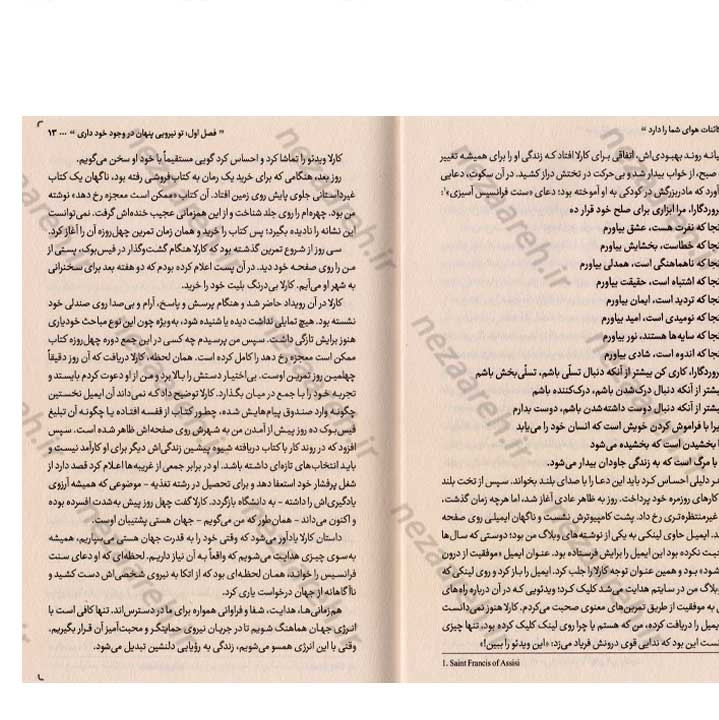 کائنات هوای شما را دارد »
میانه روند بهبودی‌اش، اتفاقی برای کارلا افتاد که زندگی او را برای همیشه تغییر
صبح، از خواب بیدار شد و بی‌حرکت در تختش دراز کشید. در آن سکوت، دعایی
آورد که مادربزرگش در کودکی به او آموخته بود؛ دعای «سنت فرانسیس آسیزی»¹:
پروردگارا، مرا ابزاری برای صلح خود قرار ده
آنجا که نفرت هست، عشق بیاورم
آنجا که خطاست، بخشایش بیاورم
آنجا که ناهماهنگی است، همدلی بیاورم
آنجا که اشتباه است، حقیقت بیاورم
آنجا که تردید است، ایمان بیاورم
آنجا که نومیدی است، امید بیاورم
آنجا که سایه‌ها هستند، نور بیاورم
آنجا که اندوه است، شادی بیاورم
پروردگارا، کاری کن بیشتر از آنکه دنبال تسلّی باشم، تسلّی‌بخش باشم
بیشتر از آنکه دنبال درک‌شدن باشم، درک‌کننده باشم
بیشتر از آنکه دنبال دوست داشته‌شدن باشم، دوست بدارم
زیرا با فراموش کردن خویش است که انسان خود را می‌یابد
با بخشیدن است که بخشیده می‌شود
با مرگ است که به زندگی جاودان بیدار می‌شود.
هر دلیلی احساس کرد باید این دعا را با صدای بلند بخواند. سپس از تخت بلند
کارهای روزمره خود پرداخت. روز به ظاهر عادی آغاز شد، اما هرچه زمان گذشت،
غیرمنتظره‌تری رخ داد. پشت کامپیوترش نشست و ناگهان ایمیلی روی صفحه
ایمیل حاوی لینکی به یکی از نوشته‌های وبلاگ من بود؛ دوستی که سال‌ها
نکرده بود این ایمیل را برایش فرستاده بود. عنوان ایمیل «موفقیت از درون
شود» بود و همین عنوان توجه کارلا را جلب کرد. ایمیل را باز کرد و روی لینکی که
وبلاگ من در سایتم هدایت می‌شد کلیک کرد؛ ویدئویی که در آن درباره راه‌های
به موفقیت از طریق تمرین‌های معنوی صحبت می‌کردم. کارلا هنوز نمی‌دانست
ایمیل را دریافت کرده، من که هستم یا چرا روی لینک کلیک کرده بود، تنها چیزی
این بود که ندایی قوی درونش فریاد می‌زد: «این ویدئو را ببین!»
1. Saint Francis of Assisi
« فصل اول: تو نیرویی پنهان در وجود خود داری » ... ۱۳
کارلا ویدئو را تماشا کرد و احساس کرد گویی مستقیماً با خود او سخن می‌گویم.
روز بعد، هنگامی که برای خرید یک رمان به کتاب‌فروشی رفته بود، ناگهان یک کتاب
غیرداستانی جلوی پایش روی زمین افتاد. آن کتاب «ممکن است معجزه رخ دهد» نوشته
من بود. چهره‌ام را روی جلد شناخت و از این همزمانی عجیب خنده‌اش گرفت. نمی‌توانست
این نشانه را نادیده بگیرد؛ پس کتاب را خرید و همان زمان تمرین چهل‌روزه آن را آغاز کرد.
سی روز از شروع تمرین گذشته بود که کارلا هنگام گشت‌وگذار در فیس‌بوک، پستی از
من را روی صفحه خود دید. در آن پست اعلام کرده بودم که دو هفته بعد برای سخنرانی
به شهر او می‌آیم. کارلا بی‌درنگ بلیت خود را خرید.
کارلا در آن رویداد حاضر شد و هنگام پرسش و پاسخ، آرام و بی‌صدا روی صندلی خود
نشسته بود. هیچ تمایلی نداشت دیده یا شنیده شود، به‌ویژه چون این نوع مباحث خودیاری
هنوز برایش تازگی داشت. سپس من پرسیدم چه کسی در این جمع دوره چهل‌روزه کتاب
ممکن است معجزه رخ دهد را کامل کرده است. همان لحظه، کارلا دریافت که آن روز دقیقاً
چهلمین روز تمرین اوست. بی‌اختیار دستش را بالا برد و من از او دعوت کردم بایستد و
تجربه خود را با جمع در میان بگذارد. کارلا توضیح داد که نمی‌داند آن ایمیل نخستین
چگونه وارد صندوق پیام‌هایش شده، چطور کتاب از قفسه افتاده یا چگونه آن تبلیغ
فیس‌بوک ده روز پیش از آمدن من به شهرش روی صفحه‌اش ظاهر شده است. سپس
افزود که در روند کار با کتاب دریافته شیوه پیشین زندگی‌اش دیگر برای او کارآمد نیست و
باید انتخاب‌های تازه‌ای داشته باشد. او در برابر جمعی از غریبه‌ها اعلام کرد قصد دارد از
شغل پرفشار خود استعفا دهد و برای تحصیل در رشته تغذیه - موضوعی که همیشه آرزوی
یادگیری‌اش را داشته - به دانشگاه بازگردد. کارلا گفت چهل روز پیش به‌شدت افسرده بوده
و اکنون می‌داند - همان‌طور که من می‌گویم - جهان هستی پشتیبان اوست.
داستان کارلا یادآور می‌شود که وقتی خود را به قدرت جهان هستی می‌سپاریم، همیشه
به‌سوی چیزی هدایت می‌شویم که واقعاً به آن نیاز داریم. لحظه‌ای که او دعای سنت
فرانسیس را خواند، همان لحظه‌ای بود که از اتکا به نیروی شخصی‌اش دست کشید و
ناآگاهانه از جهان درخواست یاری کرد.
هم‌زمانی‌ها، هدایت، شفا و فراوانی همواره برای ما در دسترس‌اند. تنها کافی است با
انرژی جهان هماهنگ شویم تا در جریان نیروی حمایتگر و محبت‌آمیز آن قرار بگیریم.
وقتی با این انرژی همسو می‌شویم، زندگی به رؤیایی دلنشین تبدیل می‌شود.
nezaareh.ir